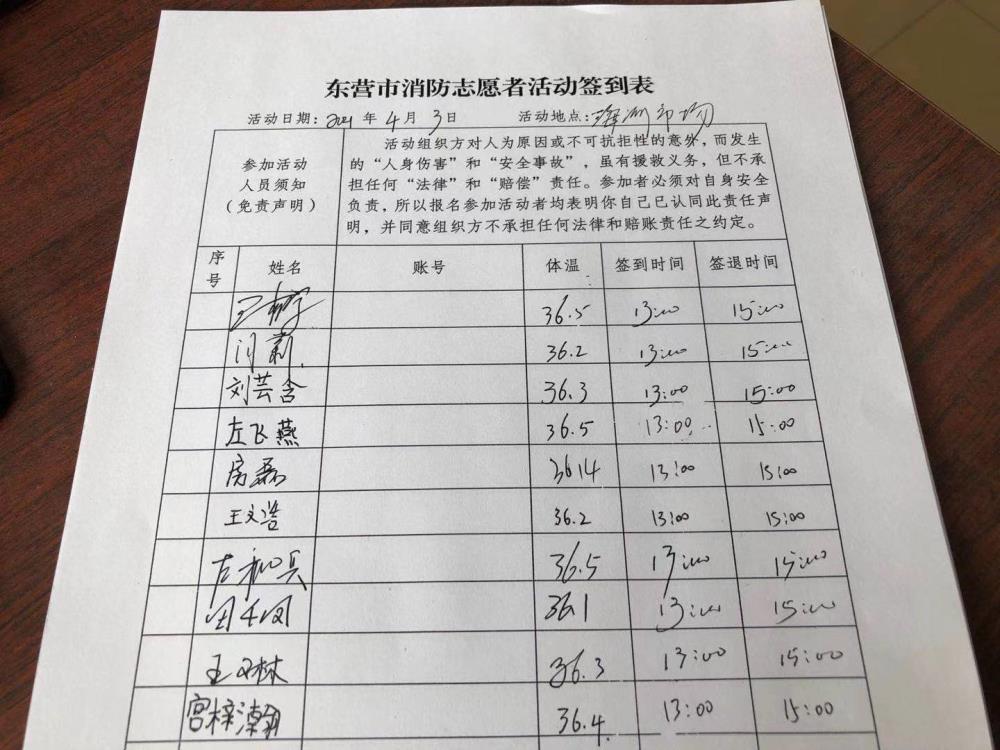 东营市消防志愿者活动签到表
活动日期：2021 年 4 月 3 日 活动地点：
参加活动
人员须知
（免责声明）
活动组织方对人为原因或不可抗拒性的意外，而发生
的“人身伤害”和“安全事故”，虽有援救义务，但不承
担任何“法律”和“赔偿”责任。参加者必须对自身安全
负责，所以报名参加活动者均表明你自己已认同此责任声
明，并同意组织方不承担任何法律和赔账责任之约定。
序号 姓名 账号 体温 签到时间 签退时间
36.5 13:00 15:00
闫莉 36.2 13:00 15:00
刘芸含 36.3 13:00 15:00
左飞燕 36.5 13:00 15:00
房磊 36.14 13:00 15:00
王文浩 36.2 13:00 15:00
36.5 13:00 15:00
36.1 13:00 15:00
王文林 36.3 13:00 15:00
宫梓瀚 36.4 13:00 15:00